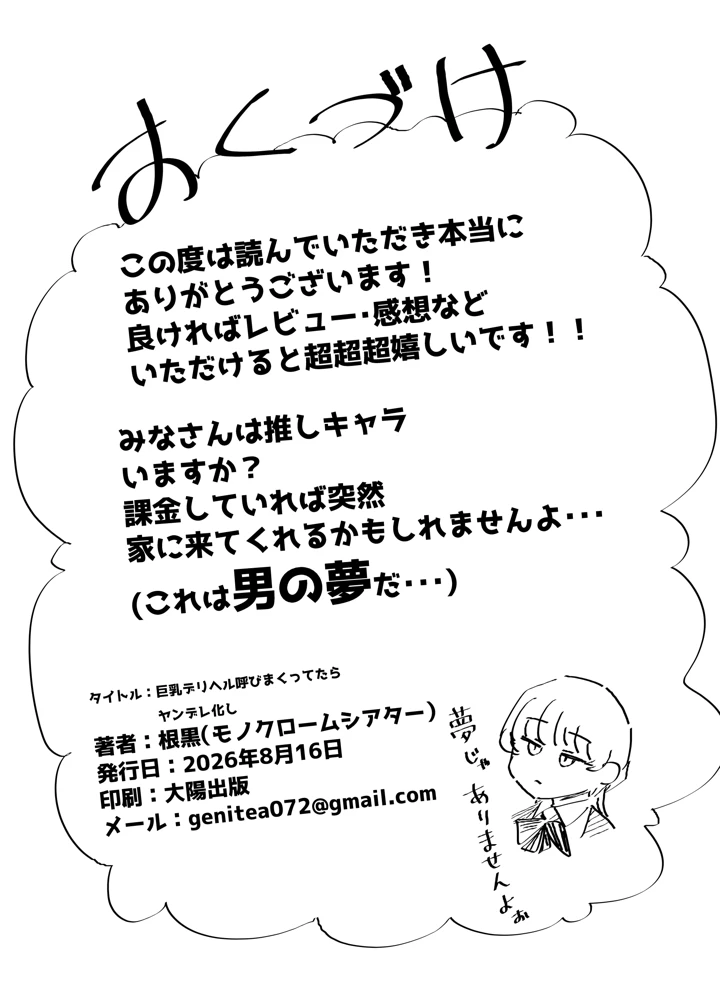 おくづけ
この度は読んでいただき本当に
ありがとうございます！
良ければレビュー・感想など
いただけると超超超嬉しいです！！
みなさんは推しキャラ
いますか？
課金していれば突然
家に来てくれるかもしれませんよ・・・
(これは男の夢だ・・・)
タイトル：巨乳デリヘル呼びまくってたら
ヤンデレ化し
著者：根黒(モノクロームシアター)
発行日：2026年8月16日
印刷：大陽出版
メール：genitea072@gmail.com
夢じゃありませんよぉ